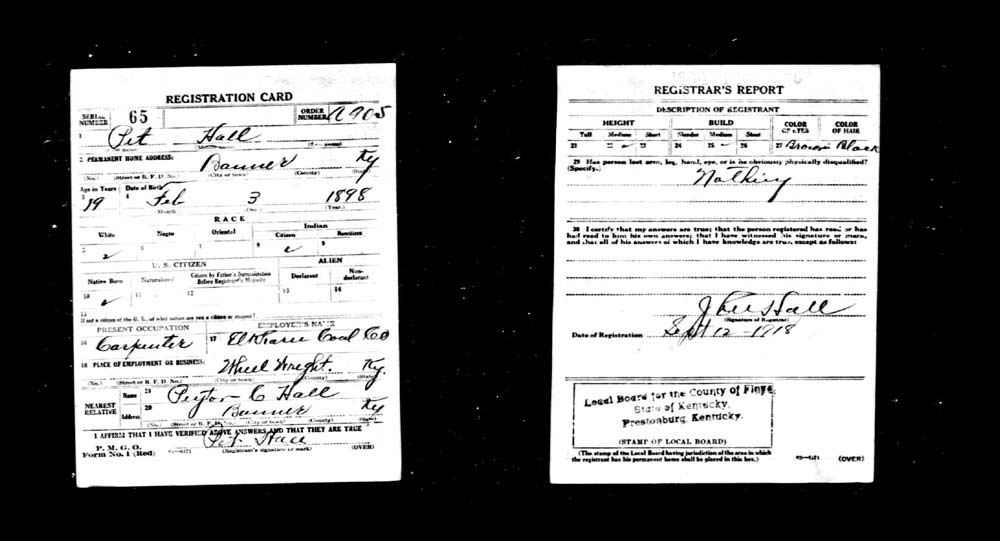 REGISTRATION CARD
SERIAL NUMBER 65 ORDER NUMBER A905
1 Pet Hall
2 PERMANENT HOME ADDRESS: Banner Ky
(No.) (Street or R. F. D. No.) (City or town) (County) (State)
Age in Years Date of Birth
3 19 4 Feb 3 1898
(Month) (Day) (Year)
RACE
White Negro Oriental Indian
Citizen Noncitizen
5 ✓ 6 7 8 ✓ 9
U. S. CITIZEN ALIEN
Native Born Naturalized Citizen by Father's Naturalization Before Registrant's Majority Declarant Non-declarant
10 ✓ 11 12 13 14
15
If not a citizen of the U. S., of what nation are you a citizen or subject?
PRESENT OCCUPATION EMPLOYER'S NAME
16 Carpenter 17 Elkhorn Coal Co
18 PLACE OF EMPLOYMENT OR BUSINESS: Wheel Wright. Ky.
(No.) (Street or R. F. D. No.) (City or town) (County) (State)
NEAREST RELATIVE Name 19 Peyton C Hall
Address 20 Banner Ky
(No.) (Street or R. F. D. No.) (City or town) (County) (State)
I AFFIRM THAT I HAVE VERIFIED ABOVE ANSWERS AND THAT THEY ARE TRUE
P. M. G. O. Pet Hall
Form No. 1 (Red) (Registrant's signature or mark) (OVER)
REGISTRAR'S REPORT
DESCRIPTION OF REGISTRANT
HEIGHT BUILD COLOR OF EYES COLOR OF HAIR
Tall Medium Short Slender Medium Stout
21 22 ✓ 23 24 25 ✓ 26 27 Brown Black
29 Has person lost arm, leg, hand, eye, or is he obviously physically disqualified?
(Specify.) Nothing
30 I certify that my answers are true; that the person registered has read or has
had read to him his own answers; that I have witnessed his signature or mark,
and that all of his answers of which I have knowledge are true, except as follows:
Hall
(Signature of Registrar)
Date of Registration Sept 12 - 1918
Local Board for the County of Floyd,
State of Kentucky,
Prestonburg, Kentucky.
(STAMP OF LOCAL BOARD)
(The stamp of the Local Board having jurisdiction of the area in which
the registrant has his permanent home shall be placed in this box.)
(OVER)